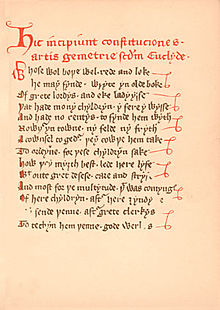 Hic incipiunt constituciones
artis gemetrie secundum Euclyde.
Whose wol bope wel rede and loke
he may fynde wryte yn olde boke
Of grete lordys and eke ladyysse
Þat hade mony chyldryn y fere y wysse
And hade no rentys to fynde hem wyth
Nowþer yn towne ny felde ny fryth
A cownsel togeder þey cowþe hem take
To ordeyne for þese chyldryn sake
How þey myȝth best lede here lyfe
Withoute gret desese care and stryf
And most for þe multytude þat was comynge
Of here chyldryn after here ȝyndynge
sende þenne after grete clerkys
To techyn hem þenne gode werkys